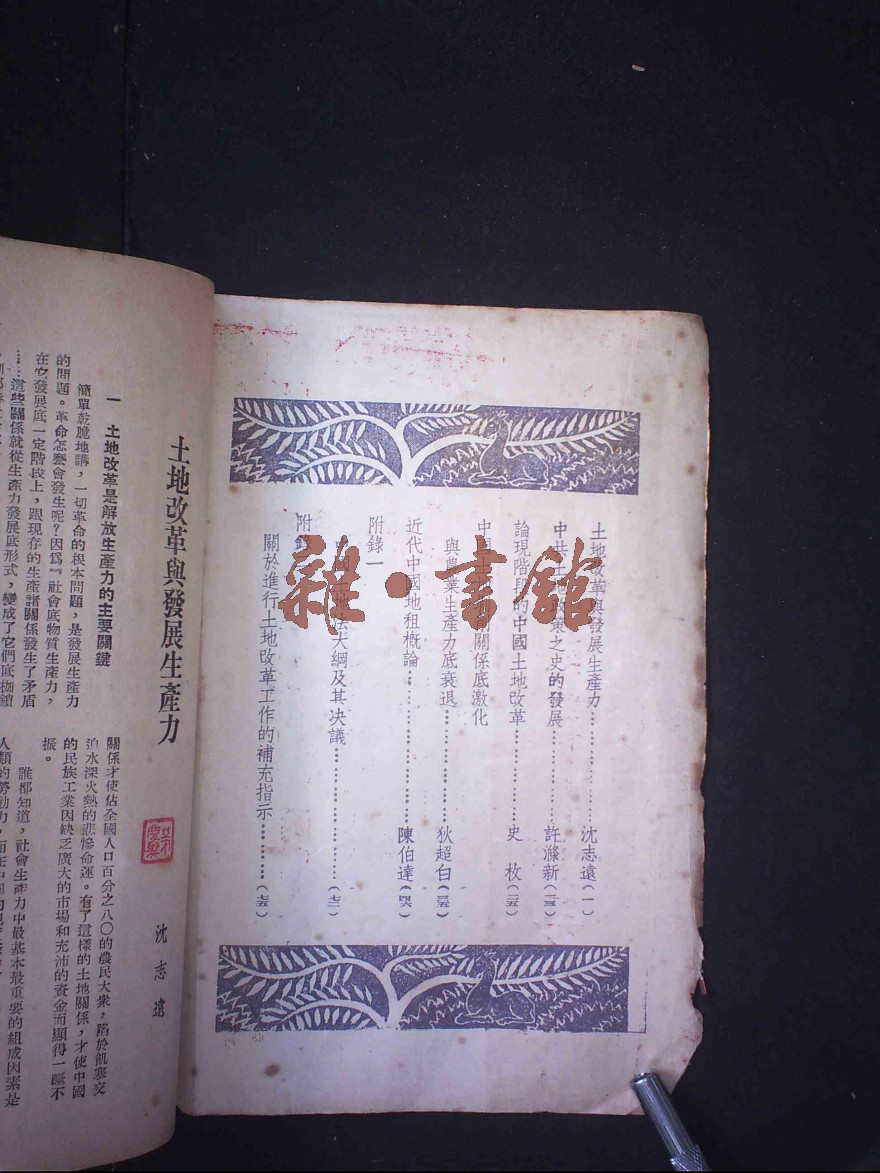 土地改革與發展生產力……………沈志遠(一)
中共土地政策之史的發展……………許滌新(三)
論現階段的中國土地改革……………史 枚(三五)
中國土地關係底激化
與農業生產力底衰退……………狄超白(三五)
近代中國地租概論……………陳伯達(四六)
附錄一
中國土地法大綱及其决議……………(七二)
附錄
關於進行土地改革工作的補充指示……………(七五)
雜·書館
土地改革與發展生產力
沈志遠
一 土地改革是解放生產力的主要關鍵
簡單乾脆地講,一切革命的根本問題,是發展生產力
的問題。革命怎麽會發生呢?因爲『社會底物質生產力,
在它發展底一定階段上,跟現存的生產諸關係發生了矛盾
……這些關係就從生產力發展底形式,變成了它們底枷鎖
關係才使佔全國人口百分之八〇的農民大衆,陷於飢寒交
迫水深火熱的悲慘命運。有了這樣的土地關係,才使中國
的民族工業因缺乏廣大的市場和充沛的資金而顯得一蹶不
振。
誰都知道,社會生產力中最基本最重要的組成因素是
人類的勞動力,